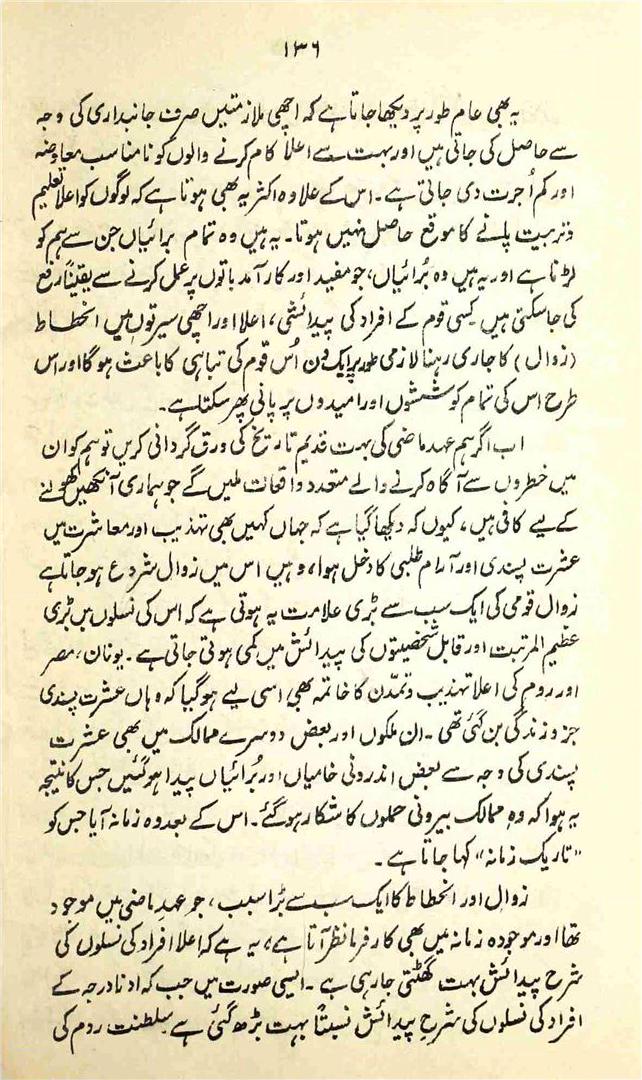 ۱۳۶
یہ بھی عام طور پر دیکھا جاتا ہے کہ اچھی ملازمتیں صرف جانبداری کی وجہ
سے حاصل کی جاتی ہیں اور بہت سے اعلا کام کرنے والوں کو نامناسب معاوضہ
اور کم اُجرت دی جاتی ہے۔ اس کے علاوہ اکثر یہ بھی ہوتا ہے کہ لوگوں کو اعلا تعلیم
وتربیت پانے کا موقع حاصل نہیں ہوتا۔ یہ ہیں وہ تمام برائیاں جن سے ہم کو
لڑنا ہے اور یہ ہیں وہ بُرائیاں، جو مفید اور کارآمد باتوں پر عمل کرنے سے یقیناً رفع
کی جاسکتی ہیں کیسی قوم کے افراد کی پیدائشی، اعلا اور اچھی سیرتوں میں انحطاط
(زوال) کا جاری رہنا لازمی طور پر ایک دن اُس قوم کی تباہی کا باعث ہوگا اور اس
طرح اس کی تمام کوششوں اور امیدوں پر پانی پھر سکتا ہے۔
اب اگر ہم عہد ماضی کی بہت قدیم تاریخ کی ورق گردانی کریں تو ہم کو ان
میں خطروں سے آگاہ کرنے والے متعدد واقعات ملیں گے جو ہماری آنکھیں کھولنے
کے لیے کافی ہیں، کیوں کہ دیکھا گیا ہے کہ جہاں کہیں بھی تہذیب اور معاشرت میں
عشرت پسندی اور آرام طلبی کا دخل ہوا، وہیں اس میں زوال شروع ہوجاتا ہے
زوال قومی کی ایک سب سے بڑی علامت یہ ہوتی ہے کہ اس کی نسلوں میں بڑی
عظیم المرتبت اور قابل شخصیتوں کی پیدائش میں کمی ہوتی جاتی ہے۔ یونان، مصر
اور روم کی اعلا تہذیب و تمدّن کا خاتمہ بھی اسی لیے ہوگیا کہ وہاں عشرت پسندی
جزو زندگی بن گئی تھی۔ ان ملکوں اور بعض دوسرے ممالک میں بھی عشرت
پسندی کی وجہ سے بعض اندرونی خامیاں اور بُرائیاں پیدا ہوگئیں جس کا نتیجہ
یہ ہوا کہ وہ ممالک بیرونی حملوں کا شکار ہوگئے۔ اس کے بعد وہ زمانہ آیا جس کو
”تاریک زمانہ“ کہا جاتا ہے۔
زوال اور انحطاط کا ایک سب سے بڑا سبب، جو عہد ماضی میں موجود
تھا اور موجودہ زمانہ میں بھی کارفرما نظر آتا ہے، یہ ہے کہ اعلا افراد کی نسلوں کی
شرح پیدائش بہت گھٹتی جارہی ہے۔ ایسی صورت میں جب کہ ادنا درجہ کے
افراد کی نسلوں کی شرحِ پیدائش نسبتاً بہت بڑھ گئی ہے سلطنت روم کی